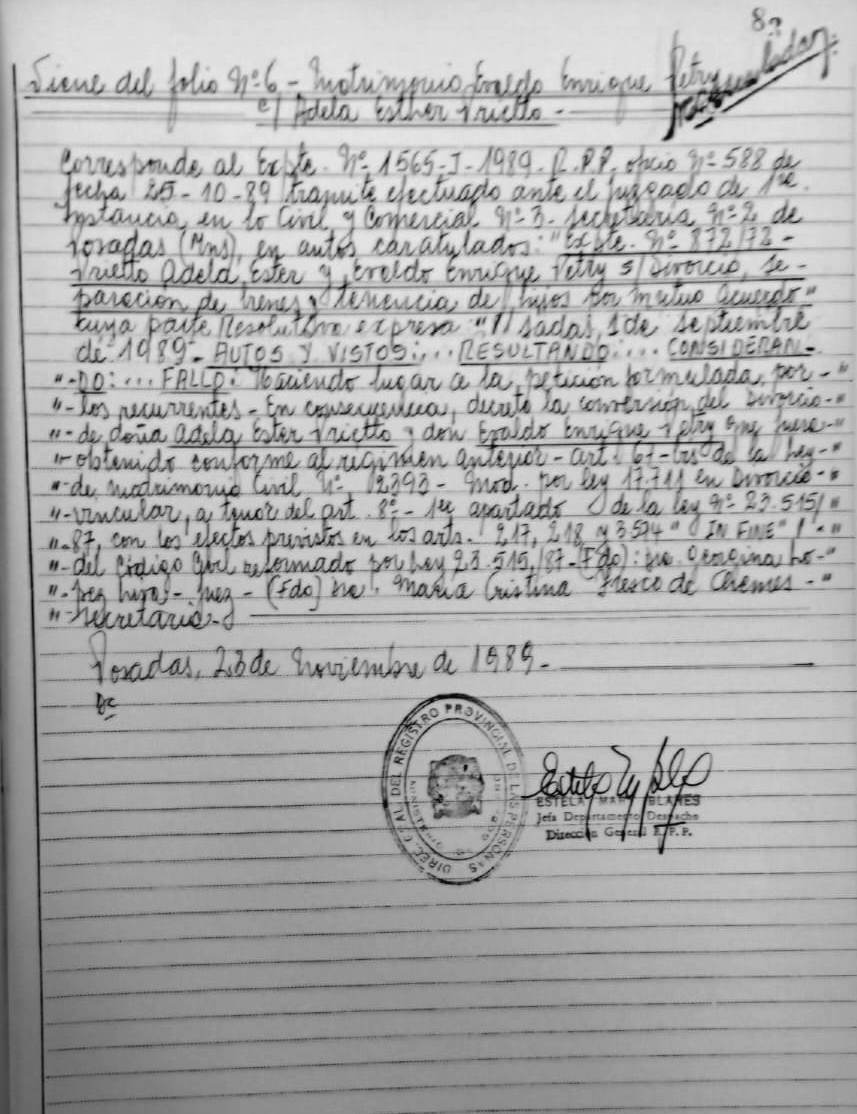 8
Viene del folio Nº 6 - Matrimonio, Evaldo Enrique Petry
c/ Adela Esther Vrietto -
Corresponde al Expte. Nº 1565-I-1989-R.P.P. oficio Nº 588 de
fecha 25-10-89 tramite efectuado ante el Juzgado de 1ra.
Instancia en lo Civil y Comercial Nº 3 - Secretaria Nº 2 de
Posadas (Mns), en autos caratulados: "Expte. Nº 872/72 -
Vrietto Adela Ester y Evaldo Enrique Petry s/ Divorcio, se-
paracion de bienes y tenencia de hijos por mutuo acuerdo"
cuya parte Resolutiva expresa "// sadas, 1 de Septiembre
de 1989 - AUTOS Y VISTOS:... RESULTANDO:... CONSIDERAN-
"-DO:... FALLO: Haciendo lugar a la petición formulada por -"
"-los recurrentes - En consecuencia, decreto la conversión del Divorcio-"
"-de doña Adela Ester Vrietto y don Evaldo Enrique Petry que fuera-"
"-obtenido conforme al regimen anterior - art. 67 - bis de la ley-"
"-de matrimonio Civil Nº 2393 - Mod. por ley 17.711 en Divorcio-"
"-vincular, a tenor del art. 8º - 1er apartado de la ley Nº 23.515/"
"-87, con los efectos previstos en los arts. 217, 218 y 3574 "IN FINE" / -"
"-del Código Civil reformado por Ley 23.515/87 - (Fdo): Dra. Georgina Lo-"
"-pez - Juez - (Fdo) Dra. Maria Cristina Fresco de Chemes -"
"-Secretaria-
Posadas, 23 de Noviembre de 1989 -
DIREC. GRAL. DEL REGISTRO PROVINCIAL DE LAS PERSONAS
ESTELA BLANES
Jefa Departamento Despacho
Dirección General R.P.P.